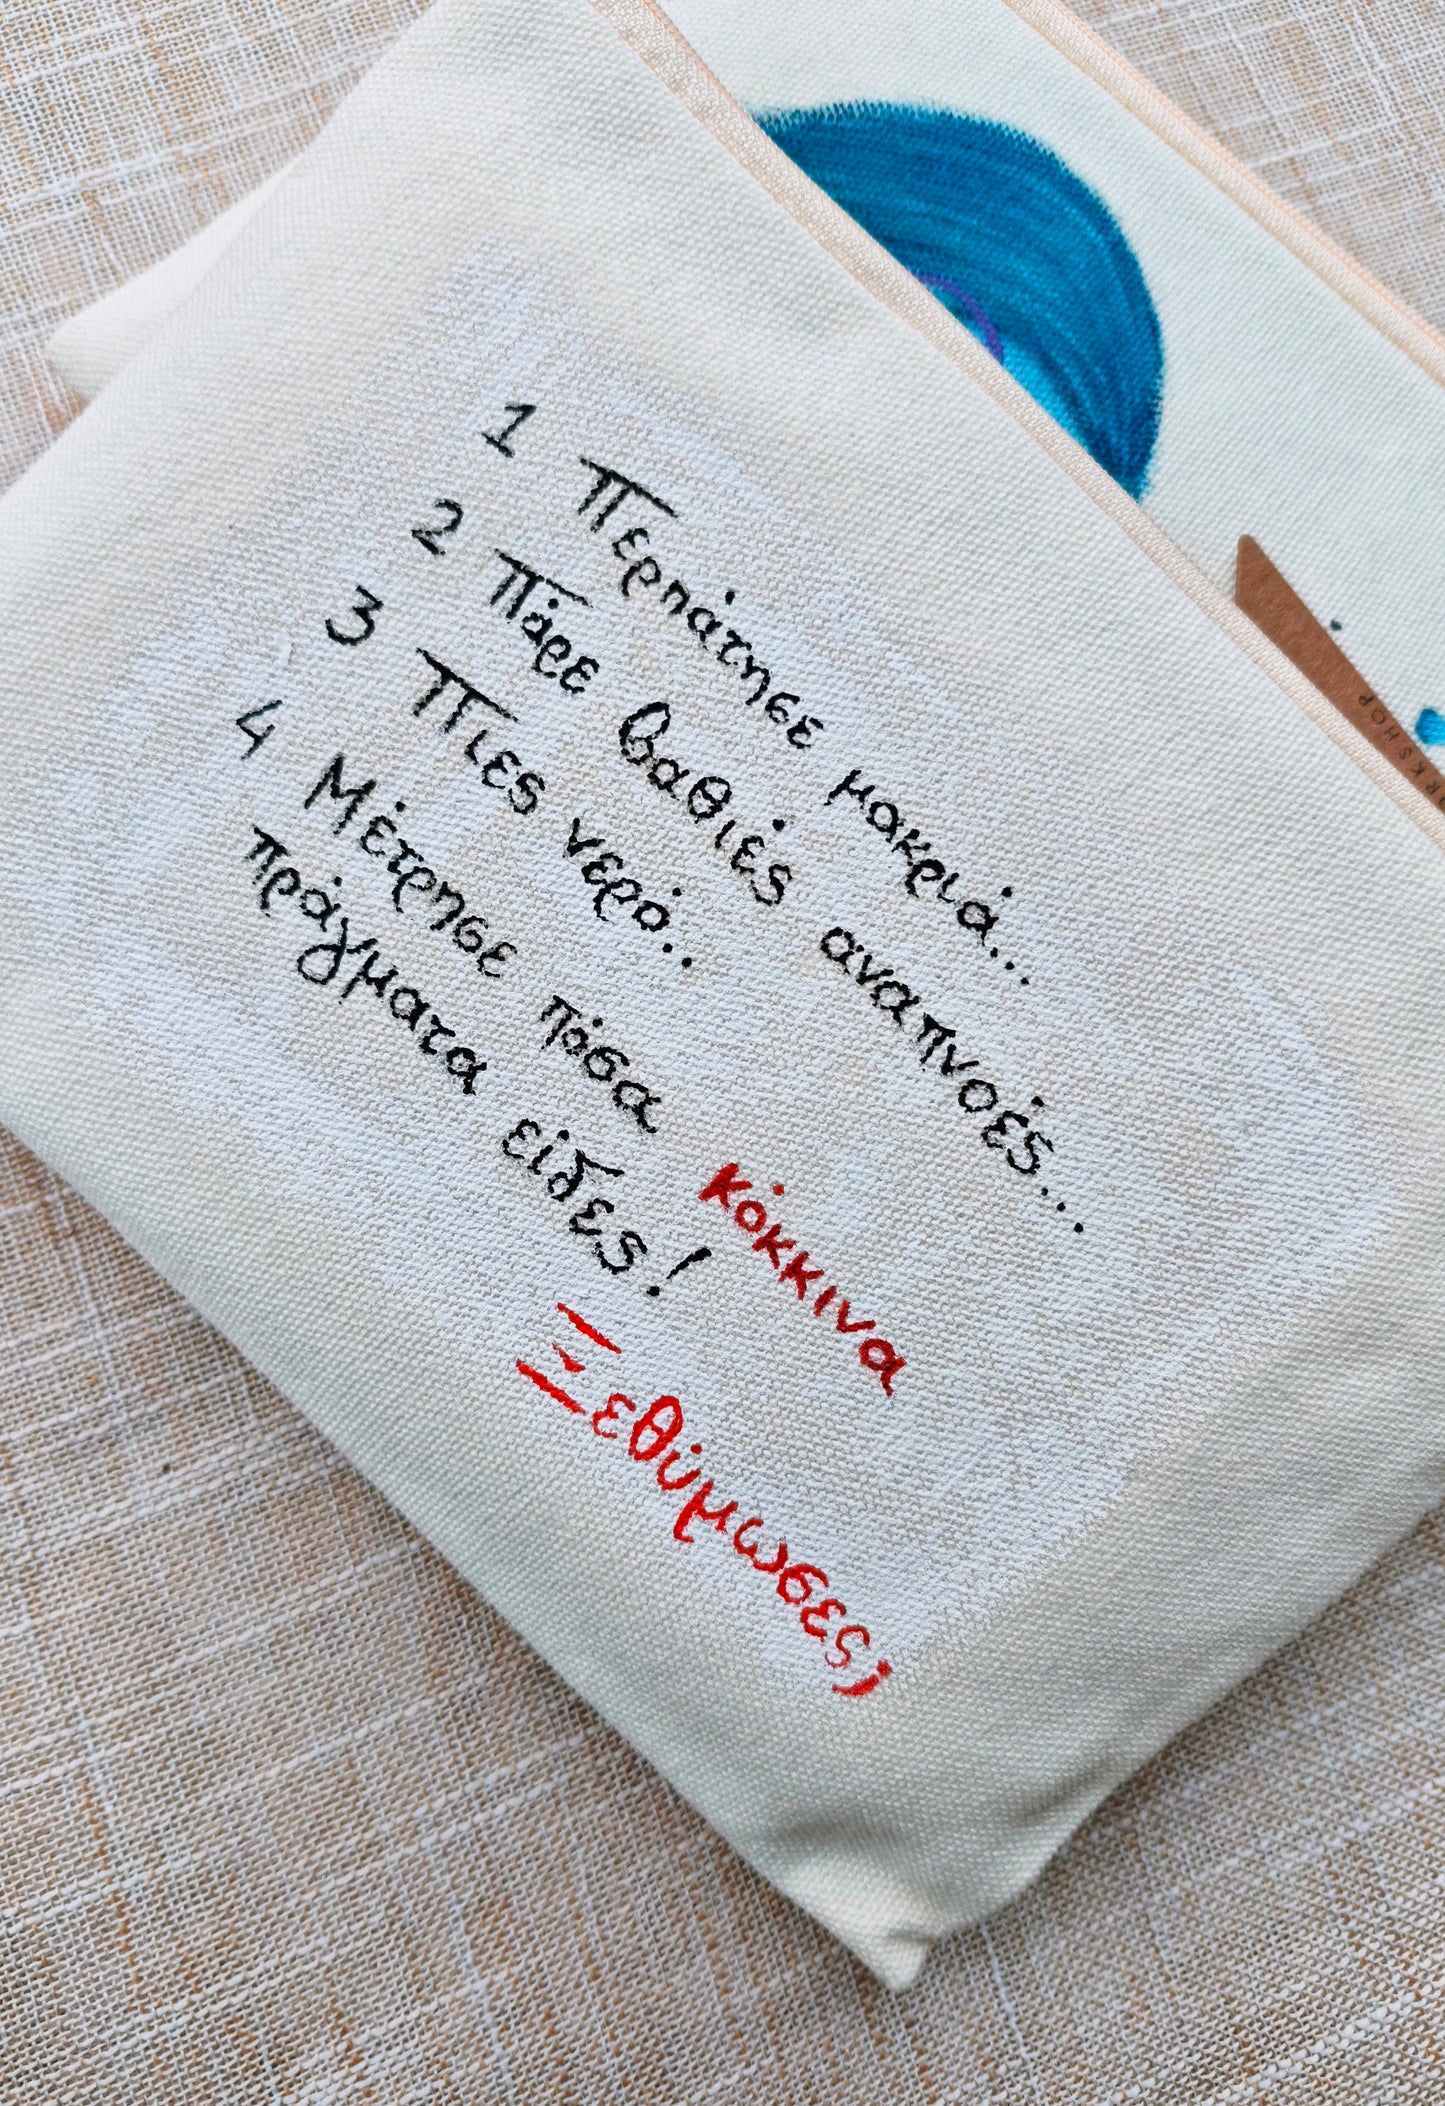 1 Περπάτησε μακριά...
2 Πάρε βαθιές αναπνοές...
3 Πιες νερό..
4 Μέτρησε πόσα κόκκινα
πράγματα είδες!
Ξεθύμωσες;
ORKSHOP